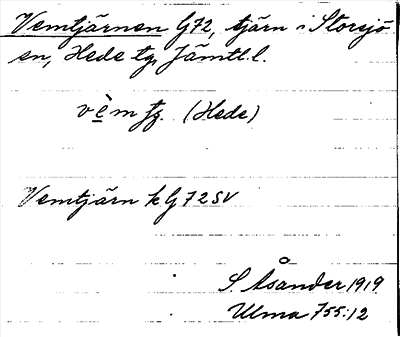 Vemtjärnen G72, tjärn i Storsjö
en, Hede tg, Jämtl.l.
vèm fg. (Hede)
Vemtjärn k G72SV
S Åsander 1919
Ulma 755:12